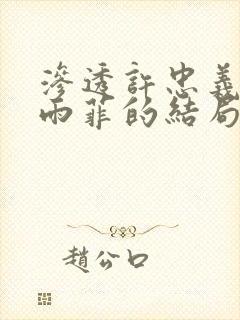 滲透許忠義
雨菲的結局
趙公口